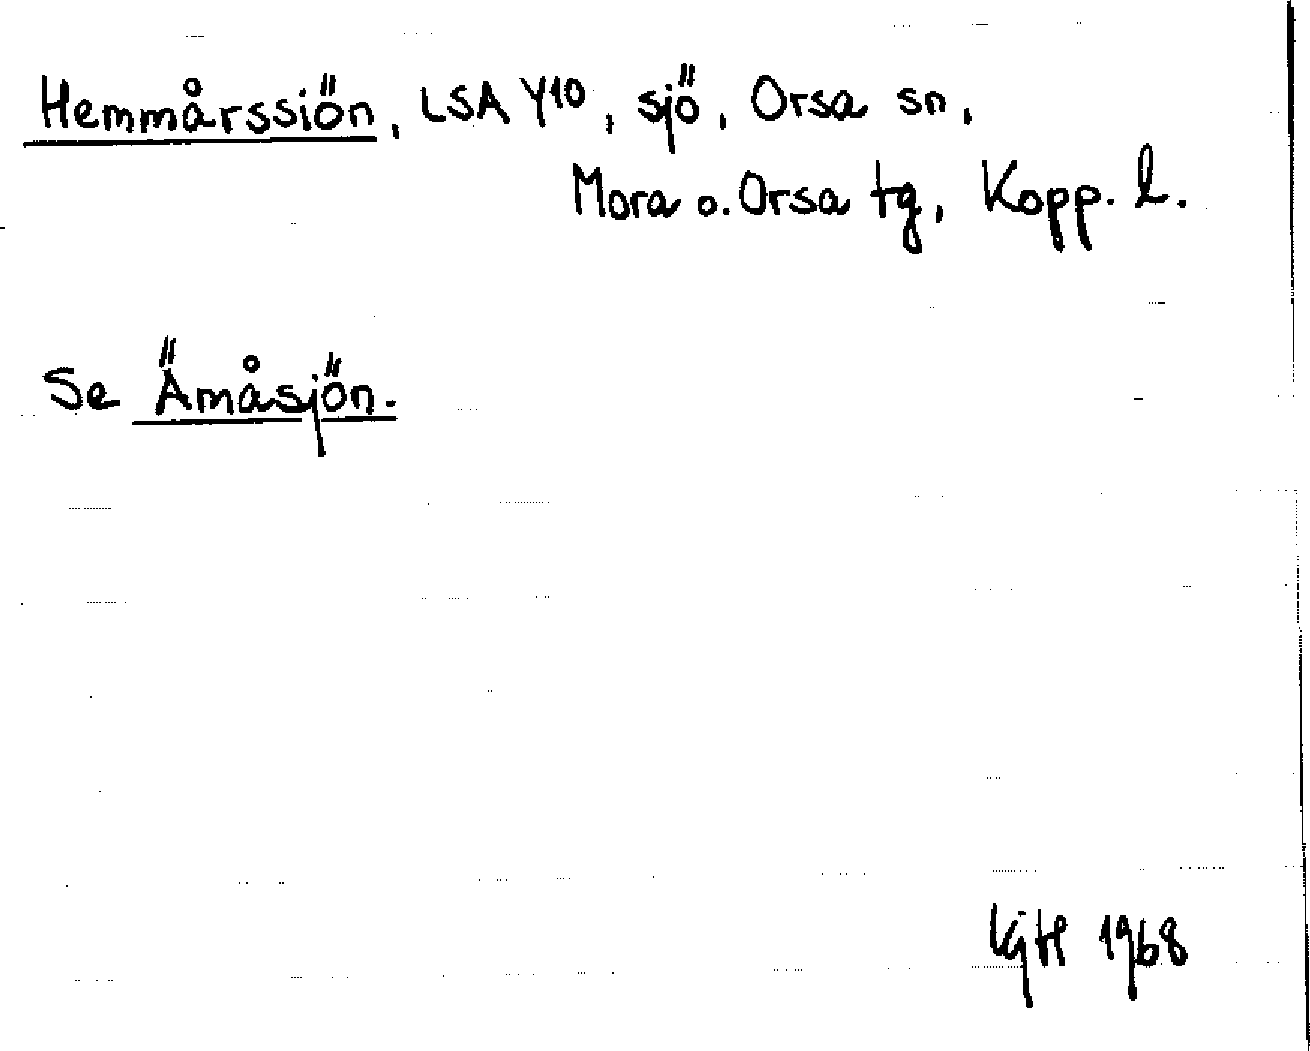 Hemmårssiön, LSA Y10, sjö, Orsa sn,
Mora o. Orsa tg, Kopp. l.
Se Ämåsjön.
1968